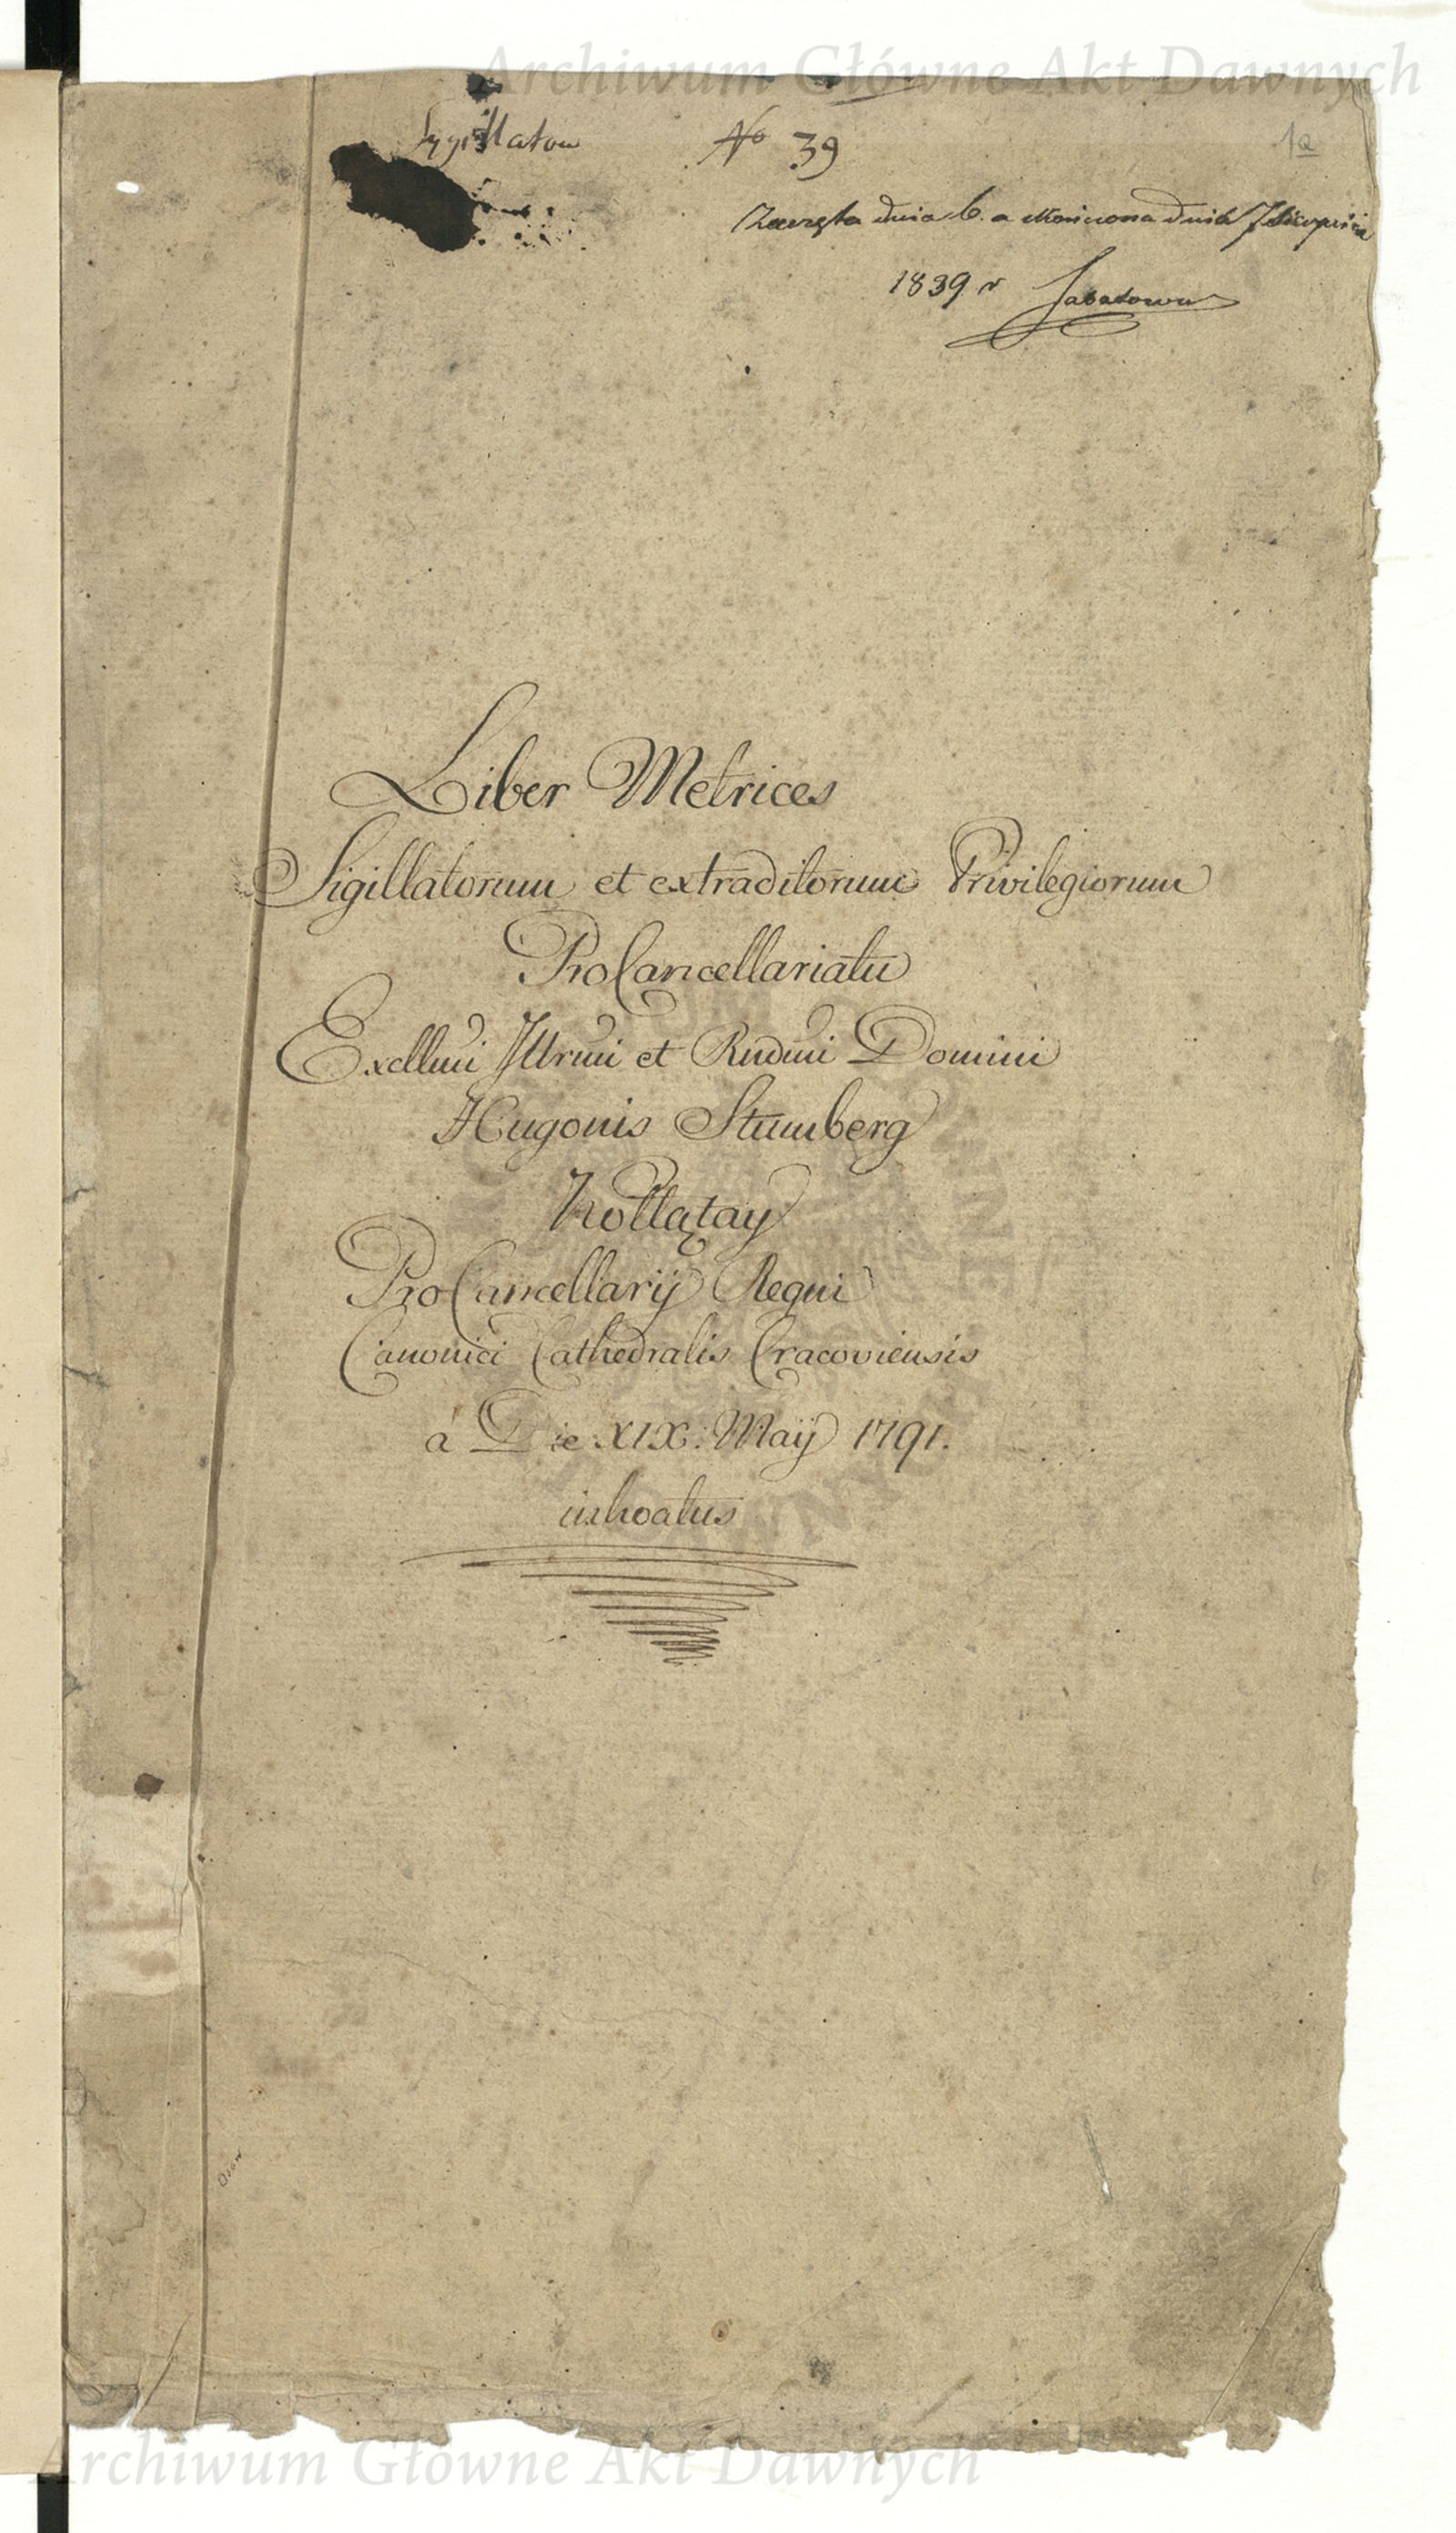 Archiwum Główne Akt Dawnych
Sygillatow No 39
1a
Zaczęta dnia 6. a skończona dnia 7 Sierpnia
1839 r
Liber Metrices
Sigillatorum et extraditorum Privilegiorum
ProCancellariatu
Excllmi Illrmi et Rndmi Domini
Hugonis Stumberg
Kołłątay
ProCancellarij Regni
Canonici Cathedralis Cracoviensis
a Die XIX: Maij 1791.
inhoatus
Archiwum Główne Akt Dawnych